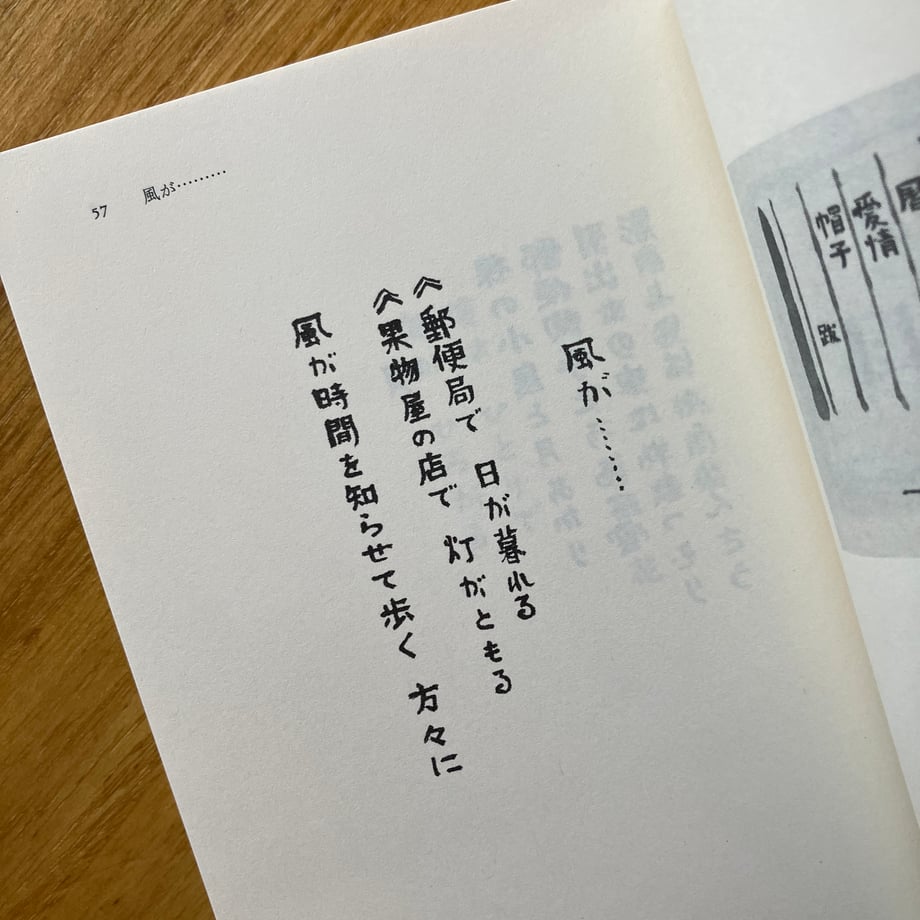 57 風が………
風が………
《郵便局で 日が暮れる
《果物屋の店で 灯がともる
風が時間を知らせて歩く 方々に
愛情
帽子
跋